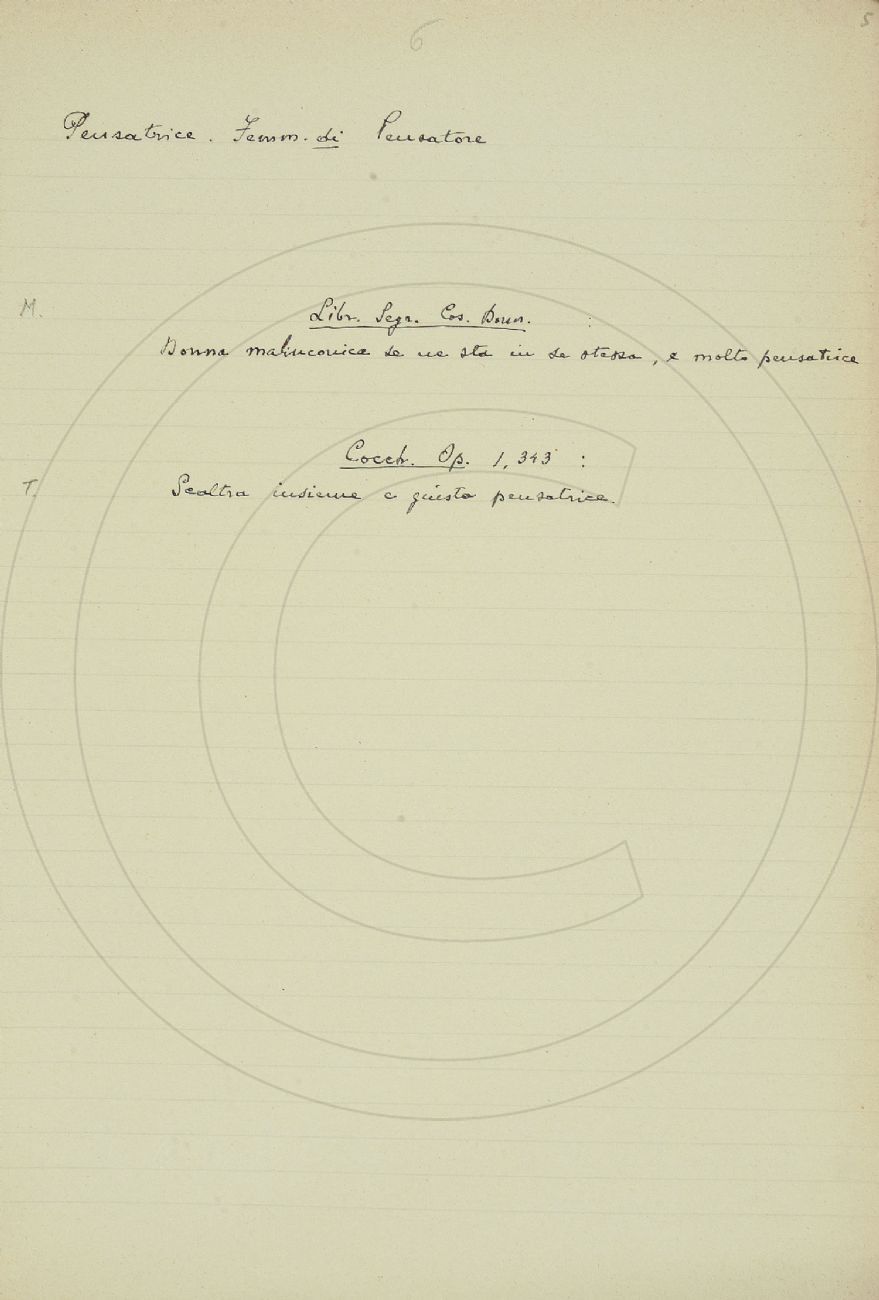 6
5
Pensatrice. Femm. di Pensatore
M.
Libr. Segr. Cos. Donn. :
Donna malinconica se ne sta in se stessa, e molto pensatrice
Cocch. Op. 1, 343 :
T.
Scaltra insieme e giusta pensatrice.